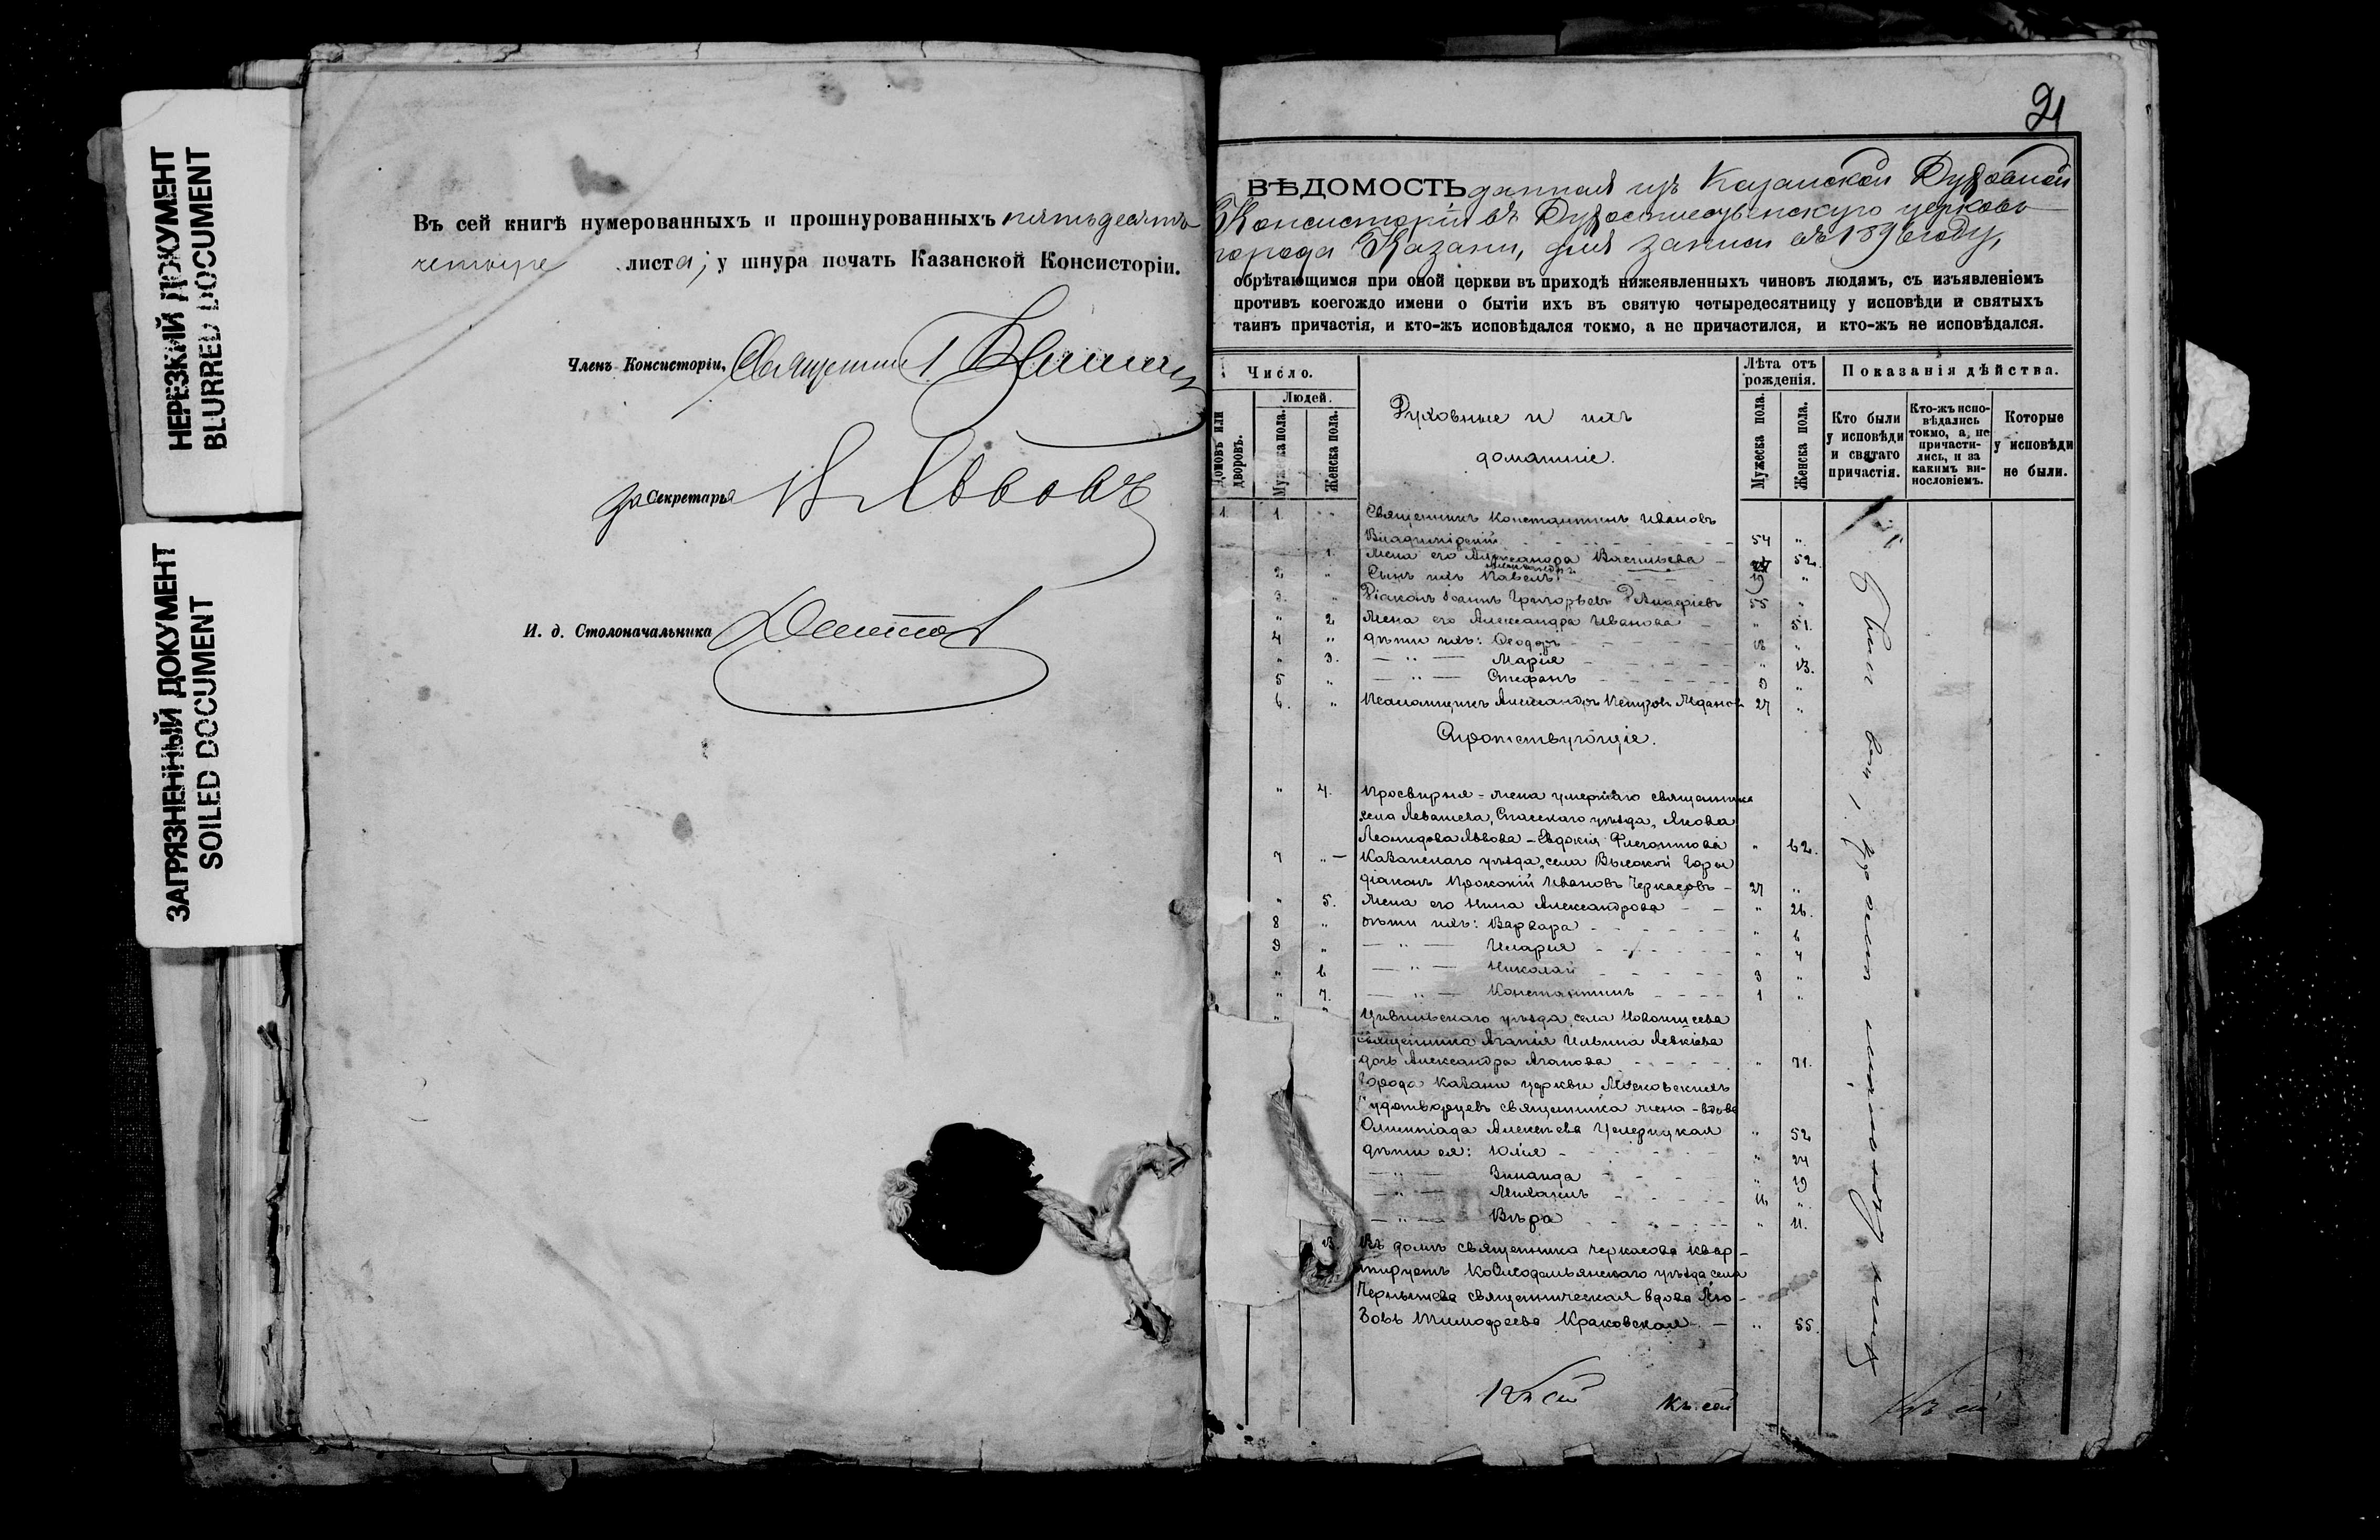 НЕРЕЗКИЙ ДОКУМЕНТ
BLURRED DOCUMENT
ЗАГРЯЗНЕННЫЙ ДОКУМЕНТ
SOILED DOCUMENT
Въ сей книгѣ нумерованныхъ и прошнурованныхъ пятьдесятъ
четыре листа; у шнура печать Казанской Консисторіи.
Членъ Консисторіи, Священникъ
за Секретаря Львовъ
И. д. Столоначальника
21
ВѢДОМОСТЬ данная изъ Казанской Духовной
Консисторіи въ Духосошественскую церковь
города Казани, для записи въ 1896 году,
обрѣтающимся при оной церкви въ приходѣ нижеявленныхъ чиновъ людямъ, съ изъявленіемъ
противъ коегождо имени о бытіи ихъ въ святую четыредесятницу у исповѣди и святыхъ
таинъ причастія, и кто-жъ исповѣдался токмо, а не причастился, и кто-жъ не исповѣдался.
Число.
Домовъ или дворовъ.
Людей.
Мужеска пола.
Женска пола.
Духовные и ихъ
домашніе.
Лѣта отъ рожденія.
Мужеска пола.
Женска пола.
Показанія дѣйства.
Кто были у исповѣди и святаго причастія.
Кто-жъ исповѣдались токмо, а не причастились, и за какимъ винословіемъ.
Которые у исповѣди не были.
1. 1. " Священникъ Константинъ Ивановъ
Владимірскій 54 "
1. Жена его Александра Васильева 52.
2. " Сынъ ихъ Павелъ 19 "
3. " Діаконъ Іоаннъ Григорьевъ 55 "
" 2 Жена его Александра Иванова " 51.
4 " дѣти ихъ: Ѳеодоръ "
" 3. — " — Марія " 13.
5 " — " — Стефанъ 9 "
6. " Псаломщикъ Александръ Петровъ Ждановъ 27 "
Сиротствующіе.
" 4. Просвирня - жена умершаго священника
села Левашева, Спасскаго уѣзда, Якова
Леонидова Львова - Евдокія " 62.
7 " — Казанскаго уѣзда, села Высокой Горы
діаконъ Прокопій Ивановъ Черкасовъ 27 "
" 5. Жена его Нина Александрова " 26.
8 " дѣти ихъ: Варвара " 6
9 " — " — Иларія " 4
" 6 — " — Николай 3 "
" 7. — " — Константинъ 1 "
" " Цивильскаго уѣзда, села
священника Агапія Ильина
дочь Александра Агапова " 71.
Города Казани церкви Московскихъ
Чудотворцевъ священника жена - вдова
Олимпіада Алексѣева " 52
дѣти ея: Юлія " 24
— " — Зинаида " 19
— " — Михаилъ "
— " — Вѣра " 11.
13. Въ домѣ священника Черкасова квар-
тируетъ Козмодемьянскаго уѣзда села
Чермышева священническая вдова Лю-
бовь Тимофеева Краковская " 55.
Къ сей
къ сей
Къ сей